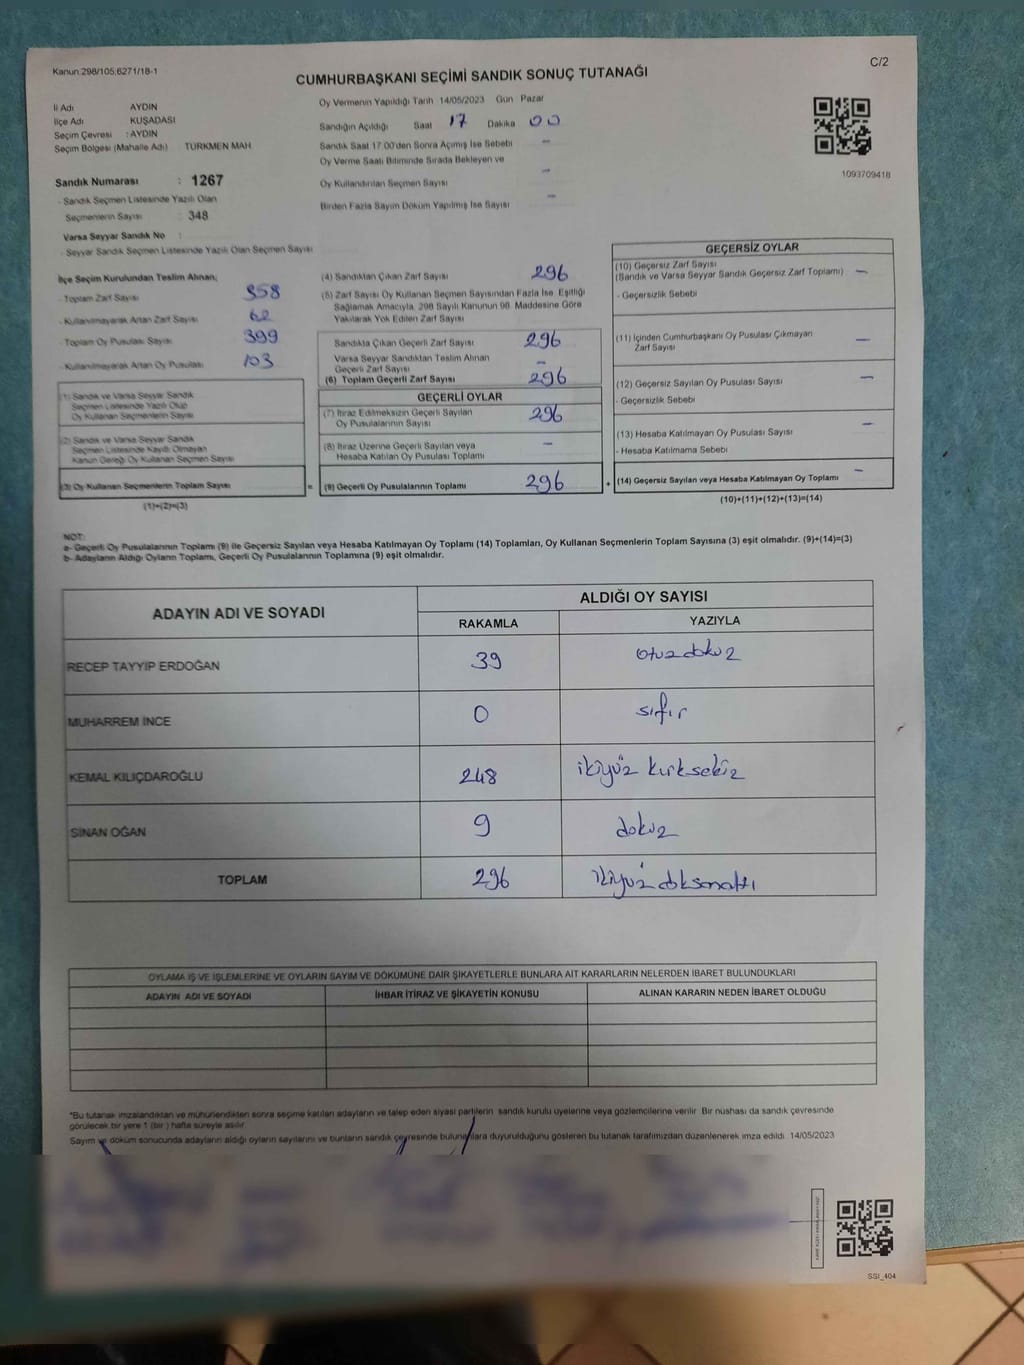 Kanun:298/105;6271/18-1
C/2
CUMHURBAŞKANI SEÇİMİ SANDIK SONUÇ TUTANAĞI
İl Adı AYDIN
İlçe Adı KUŞADASI
Seçim Çevresi : AYDIN
Seçim Bölgesi (Mahalle Adı) TÜRKMEN MAH.
Oy Vermenin Yapıldığı Tarih 14/05/2023 Gün Pazar
Sandığın Açıldığı Saat 17 Dakika 00
Sandık Saat 17.00'den Sonra Açımış İse Sebebi -
Oy Verme Saati Bitiminde Sırada Bekleyen ve
Oy Kullandırılan Seçmen Sayısı -
Birden Fazla Sayım Döküm Yapılmış İse Sayısı -
1093709418
Sandık Numarası : 1267
- Sandık Seçmen Listesinde Yazılı Olan
Seçmenlerin Sayısı : 348
Varsa Seyyar Sandık No :
- Seyyar Sandık Seçmen Listesinde Yazılı Olan Seçmen Sayısı
İlçe Seçim Kurulundan Teslim Alınan;
- Toplam Zarf Sayısı 358
- Kullanılmayarak Artan Zarf Sayısı 62
- Toplam Oy Pusulası Sayısı 399
- Kullanılmayarak Artan Oy Pusulası 103
(1) Sandık ve Varsa Seyyar Sandık
Seçmen Listesinde Yazılı Olup
Oy Kullanan Seçmenlerin Sayısı
(2) Sandık ve Varsa Seyyar Sandık
Seçmen Listesinde Kayıtlı Olmayan
Kanun Gereği Oy Kullanan Seçmen Sayısı
(3) Oy Kullanan Seçmenlerin Toplam Sayısı
(1)+(2)=(3)
=
(4) Sandıktan Çıkan Zarf Sayısı 296
(5) Zarf Sayısı Oy Kullanan Seçmen Sayısından Fazla İse, Eşitliği
Sağlamak Amacıyla, 298 Sayılı Kanunun 98. Maddesine Göre
Yakılarak Yok Edilen Zarf Sayısı
Sandıkta Çıkan Geçerli Zarf Sayısı 296
Varsa Seyyar Sandıktan Teslim Alınan
Geçerli Zarf Sayısı -
(6) Toplam Geçerli Zarf Sayısı 296
GEÇERLİ OYLAR
(7) İtiraz Edilmeksizin Geçerli Sayılan
Oy Pusulalarının Sayısı 296
(8) İtiraz Üzerine Geçerli Sayılan veya
Hesaba Katılan Oy Pusulası Toplamı -
(9) Geçerli Oy Pusulalarının Toplamı 296
+
GEÇERSİZ OYLAR
(10) Geçersiz Zarf Sayısı
(Sandık ve Varsa Seyyar Sandık Geçersiz Zarf Toplamı) -
- Geçersizlik Sebebi
(11) İçinden Cumhurbaşkanı Oy Pusulası Çıkmayan
Zarf Sayısı -
(12) Geçersiz Sayılan Oy Pusulası Sayısı -
- Geçersizlik Sebebi
(13) Hesaba Katılmayan Oy Pusulası Sayısı -
- Hesaba Katılmama Sebebi
(14) Geçersiz Sayılan veya Hesaba Katılmayan Oy Toplamı -
(10)+(11)+(12)+(13)=(14)
NOT:
a- Geçerli Oy Pusulalarının Toplamı (9) ile Geçersiz Sayılan veya Hesaba Katılmayan Oy Toplamı (14) Toplamları, Oy Kullanan Seçmenlerin Toplam Sayısına (3) eşit olmalıdır. (9)+(14)=(3)
b- Adayların Aldığı Oyların Toplamı, Geçerli Oy Pusulalarının Toplamına (9) eşit olmalıdır.
ADAYIN ADI VE SOYADI
ALDIĞI OY SAYISI
RAKAMLA YAZIYLA
RECEP TAYYİP ERDOĞAN 39 otuzdokuz
MUHARREM İNCE 0 sıfır
KEMAL KILIÇDAROĞLU 248 ikiyüz kırksekiz
SİNAN OĞAN 9 dokuz
TOPLAM 296 ikiyüz doksanaltı
OYLAMA İŞ VE İŞLEMLERİNE VE OYLARIN SAYIM VE DÖKÜMÜNE DAİR ŞİKAYETLERLE BUNLARA AİT KARARLARIN NELERDEN İBARET BULUNDUKLARI
ADAYIN ADI VE SOYADI İHBAR İTİRAZ VE ŞİKAYETİN KONUSU ALINAN KARARIN NEDEN İBARET OLDUĞU
*Bu tutanak imzalandıktan ve mühürlendikten sonra seçime katılan adayların ve talep eden siyasi partilerin sandık kurulu üyelerine veya gözlemcilerine verilir. Bir nüshası da sandık çevresinde
görülecek bir yere 1 (bir) hafta süreyle asılır.
Sayım ve döküm sonucunda adayların aldığı oyların sayılarını ve bunların sandık çevresinde bulunanlara duyurulduğunu gösteren bu tutanak tarafımızdan düzenlenerek imza edildi. 14/05/2023
SSI_404